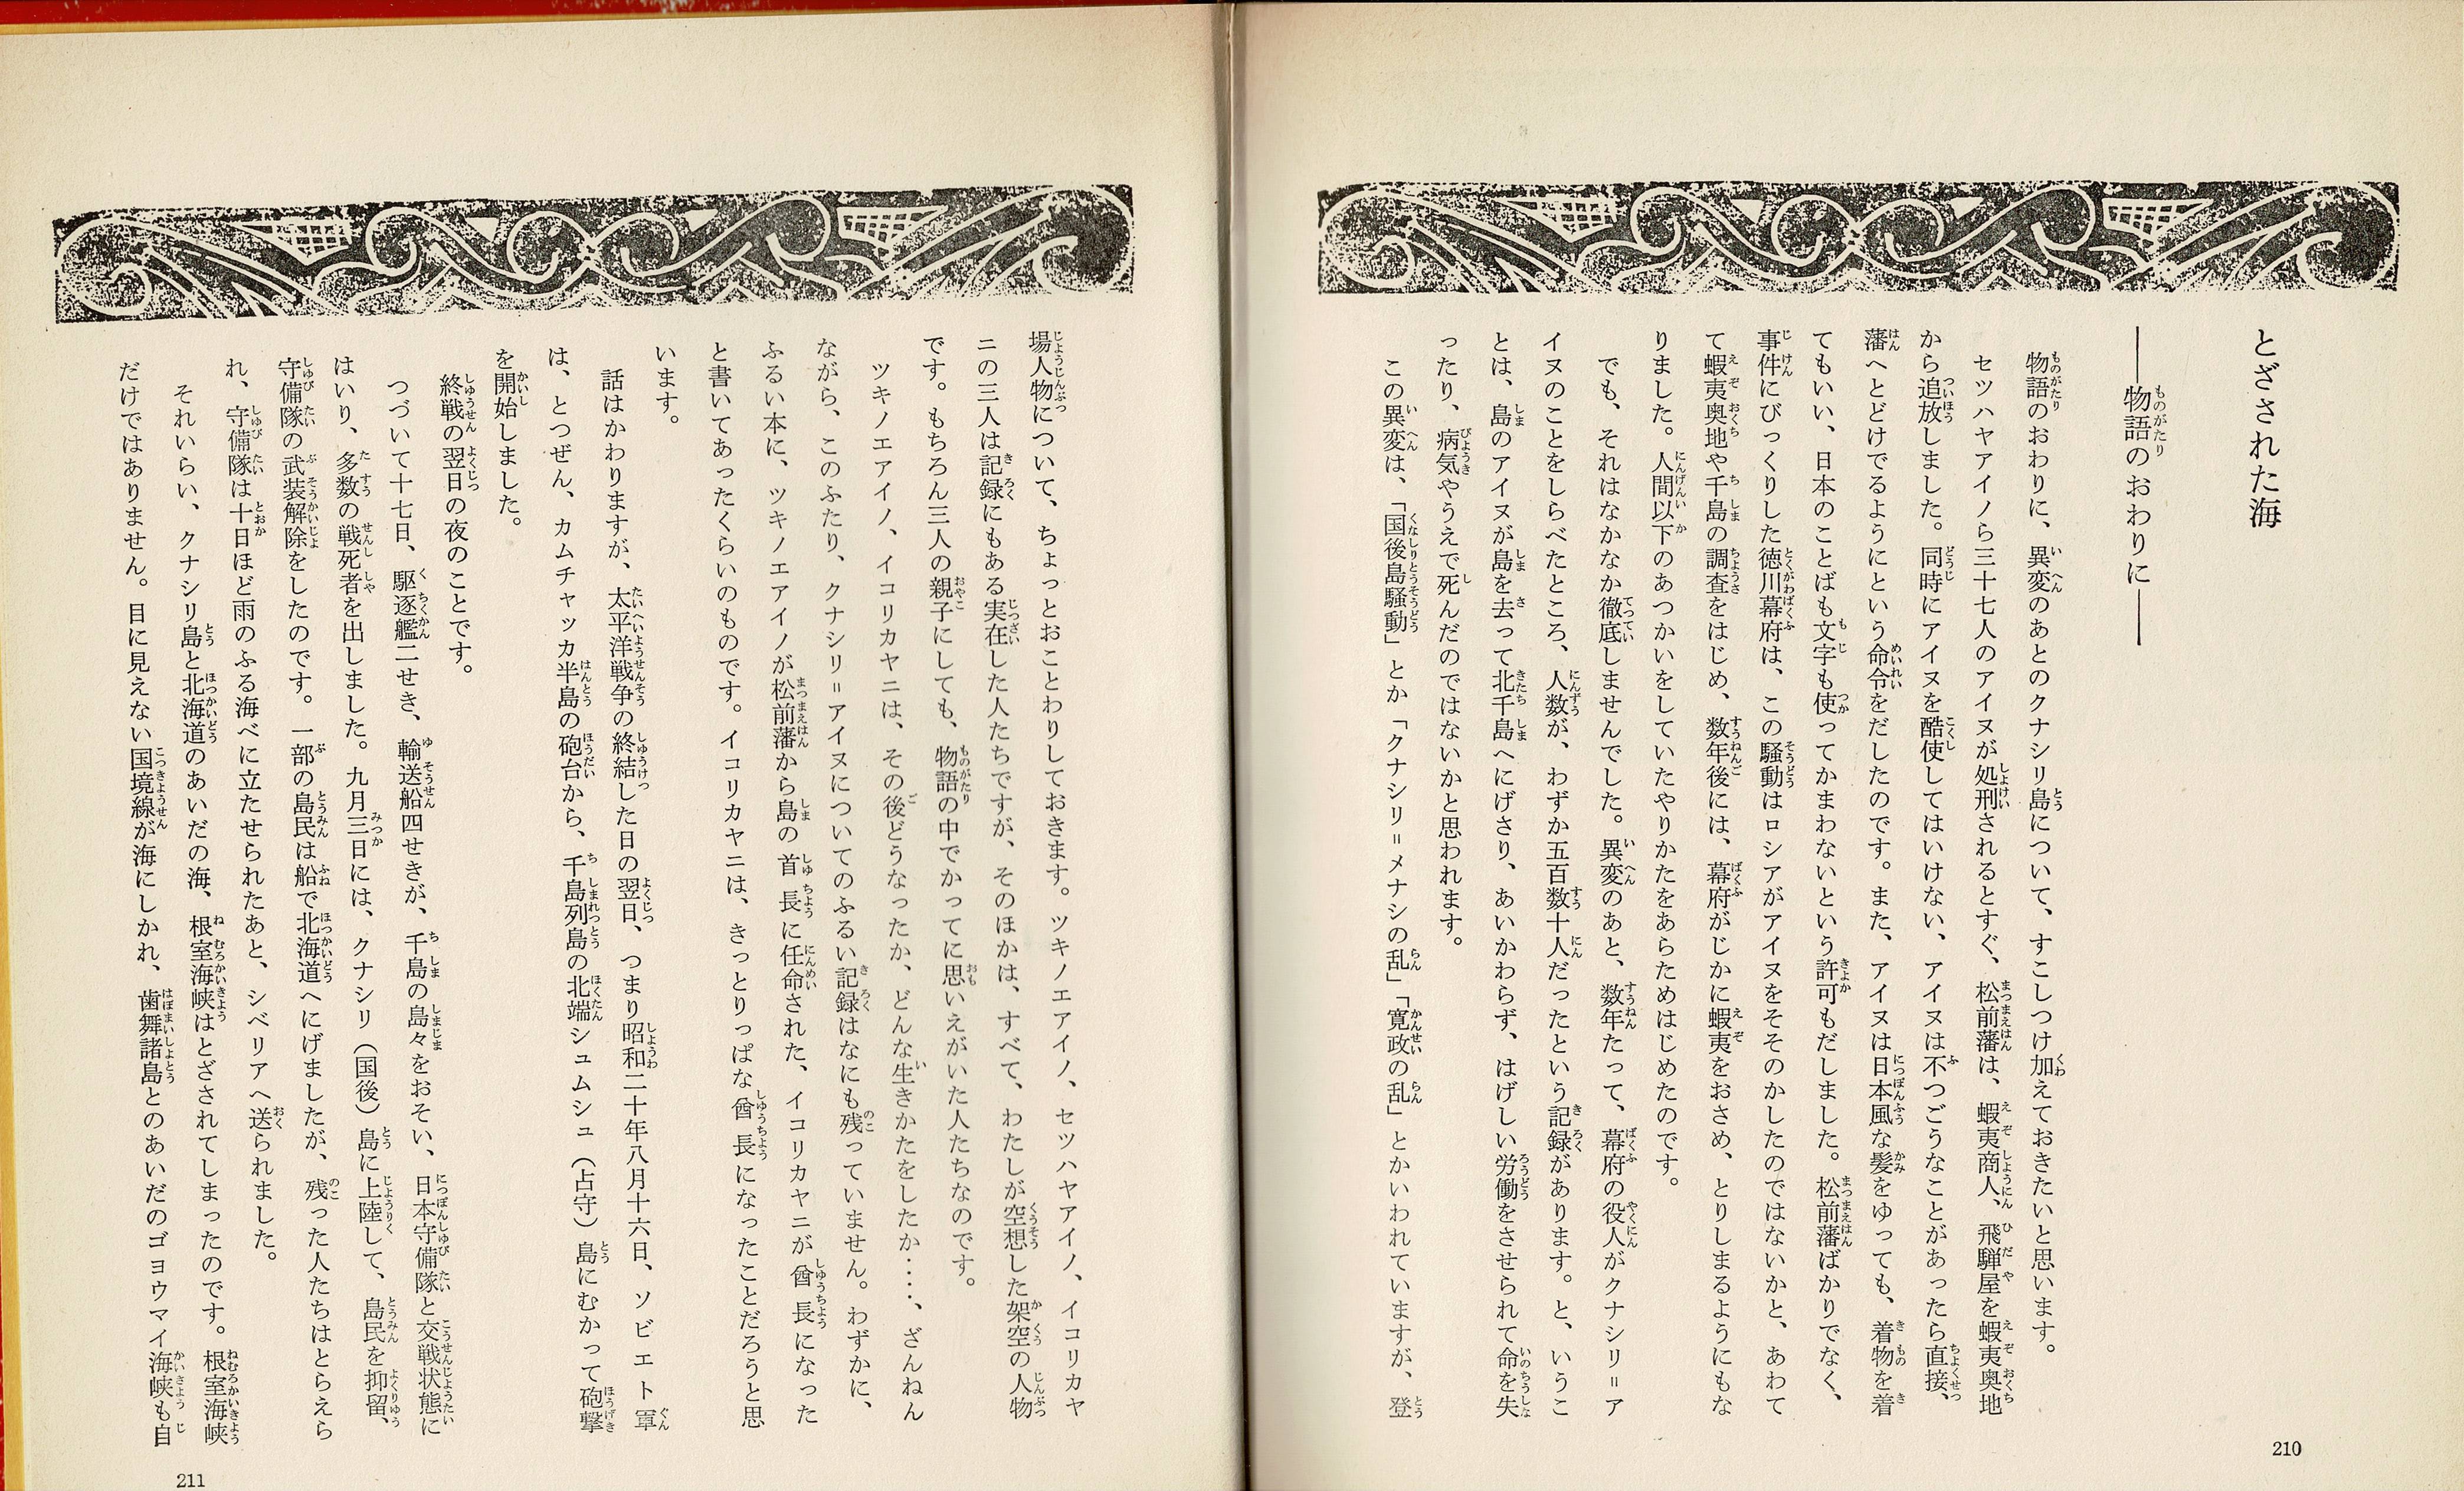 とざされた海
――物語のおわりに――
物語のおわりに、異変のあとのクナシリ島について、すこしつけ加えておきたいと思います。
セツハヤアイノら三十七人のアイヌが処刑されるとすぐ、松前藩は、蝦夷商人、飛騨屋を蝦夷奥地
から追放しました。同時にアイヌを酷使してはいけない、アイヌは不つごうなことがあったら直接、
藩へとどけでるようにという命令をだしたのです。また、アイヌは日本風な髪をゆっても、着物を着
てもいい、日本のことばも文字も使ってかまわないという許可もだしました。松前藩ばかりでなく、
事件にびっくりした徳川幕府は、この騒動はロシアがアイヌをそそのかしたのではないかと、あわて
て蝦夷奥地や千島の調査をはじめ、数年後には、幕府がじかに蝦夷をおさめ、とりしまるようにもな
りました。人間以下のあつかいをしていたやりかたをあらためはじめたのです。
でも、それはなかなか徹底しませんでした。異変のあと、数年たって、幕府の役人がクナシリ＝ア
イヌのことをしらべたところ、人数が、わずか五百数十人だったという記録があります。と、いうこ
とは、島のアイヌが島を去って北千島へにげさり、あいかわらず、はげしい労働をさせられて命を失
ったり、病気やうえで死んだのではないかと思われます。
この異変は、「国後島騒動」とか「クナシリ＝メナシの乱」「寛政の乱」とかいわれていますが、登
210
場人物について、ちょっとおことわりしておきます。ツキノエアイノ、セツハヤアイノ、イコリカヤ
ニの三人は記録にもある実在した人たちですが、そのほかは、すべて、わたしが空想した架空の人物
です。もちろん三人の親子にしても、物語の中でかってに思いえがいた人たちなのです。
ツキノエアイノ、イコリカヤニは、その後どうなったか、どんな生きかたをしたか‥‥、ざんねん
ながら、このふたり、クナシリ＝アイヌについてのふるい記録はなにも残っていません。わずかに、
ふるい本に、ツキノエアイノが松前藩から島の首長に任命された、イコリカヤニが酋長になった
と書いてあったくらいのものです。イコリカヤニは、きっとりっぱな酋長になったことだろうと思
います。
話はかわりますが、太平洋戦争の終結した日の翌日、つまり昭和二十年八月十六日、ソビエト軍
は、とつぜん、カムチャッカ半島の砲台から、千島列島の北端シュムシュ（占守）島にむかって砲撃
を開始しました。
終戦の翌日の夜のことです。
つづいて十七日、駆逐艦二せき、輸送船四せきが、千島の島々をおそい、日本守備隊と交戦状態に
はいり、多数の戦死者を出しました。九月三日には、クナシリ（国後）島に上陸して、島民を抑留、
守備隊の武装解除をしたのです。一部の島民は船で北海道へにげましたが、残った人たちはとらえら
れ、守備隊は十日ほど雨のふる海べに立たせられたあと、シベリアへ送られました。
それいらい、クナシリ島と北海道のあいだの海、根室海峡はとざされてしまったのです。根室海峡
だけではありません。目に見えない国境線が海にしかれ、歯舞諸島とのあいだのゴヨウマイ海峡も自
211